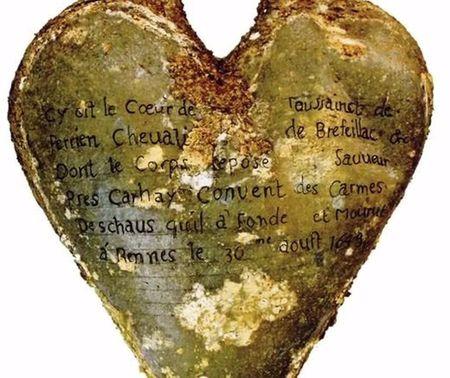 Cy Git le Cœur de Toussainct de
Perrien Chevali de Brefeillac
Dont le Corps Repose Sauveur
Pres Carhay Convent des Carmes
Deschaus quil a Fonde et Mourut
á Rennes le 30 me aoust 1649